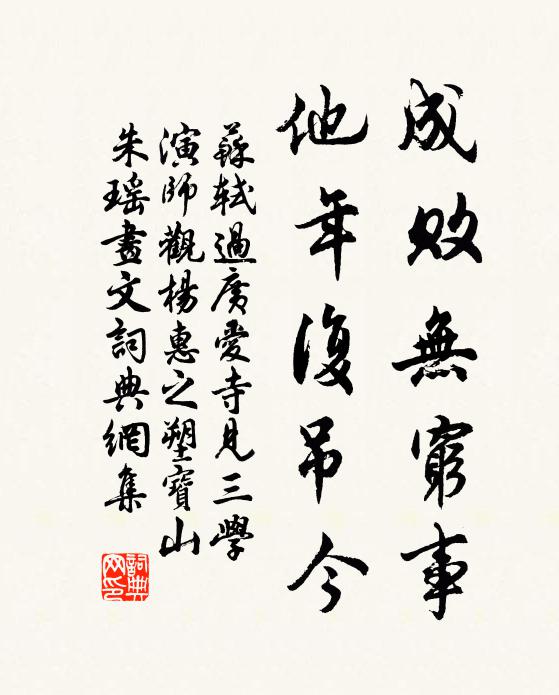 成敗無窮事
他年復吊今
蘇軾過廣愛寺見三學
演師觀楊惠之塑寶山
朱瑶畫文詞典網集
詞典網印